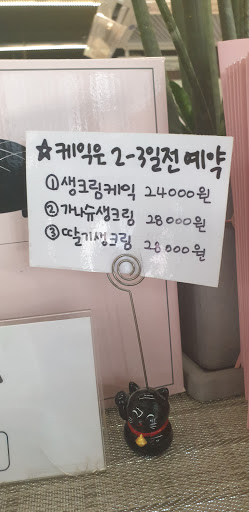 ☆케익은 2-3일전 예약
① 생크림케익 24000원
② 가나슈생크림 28000원
③ 딸기생크림 28000원